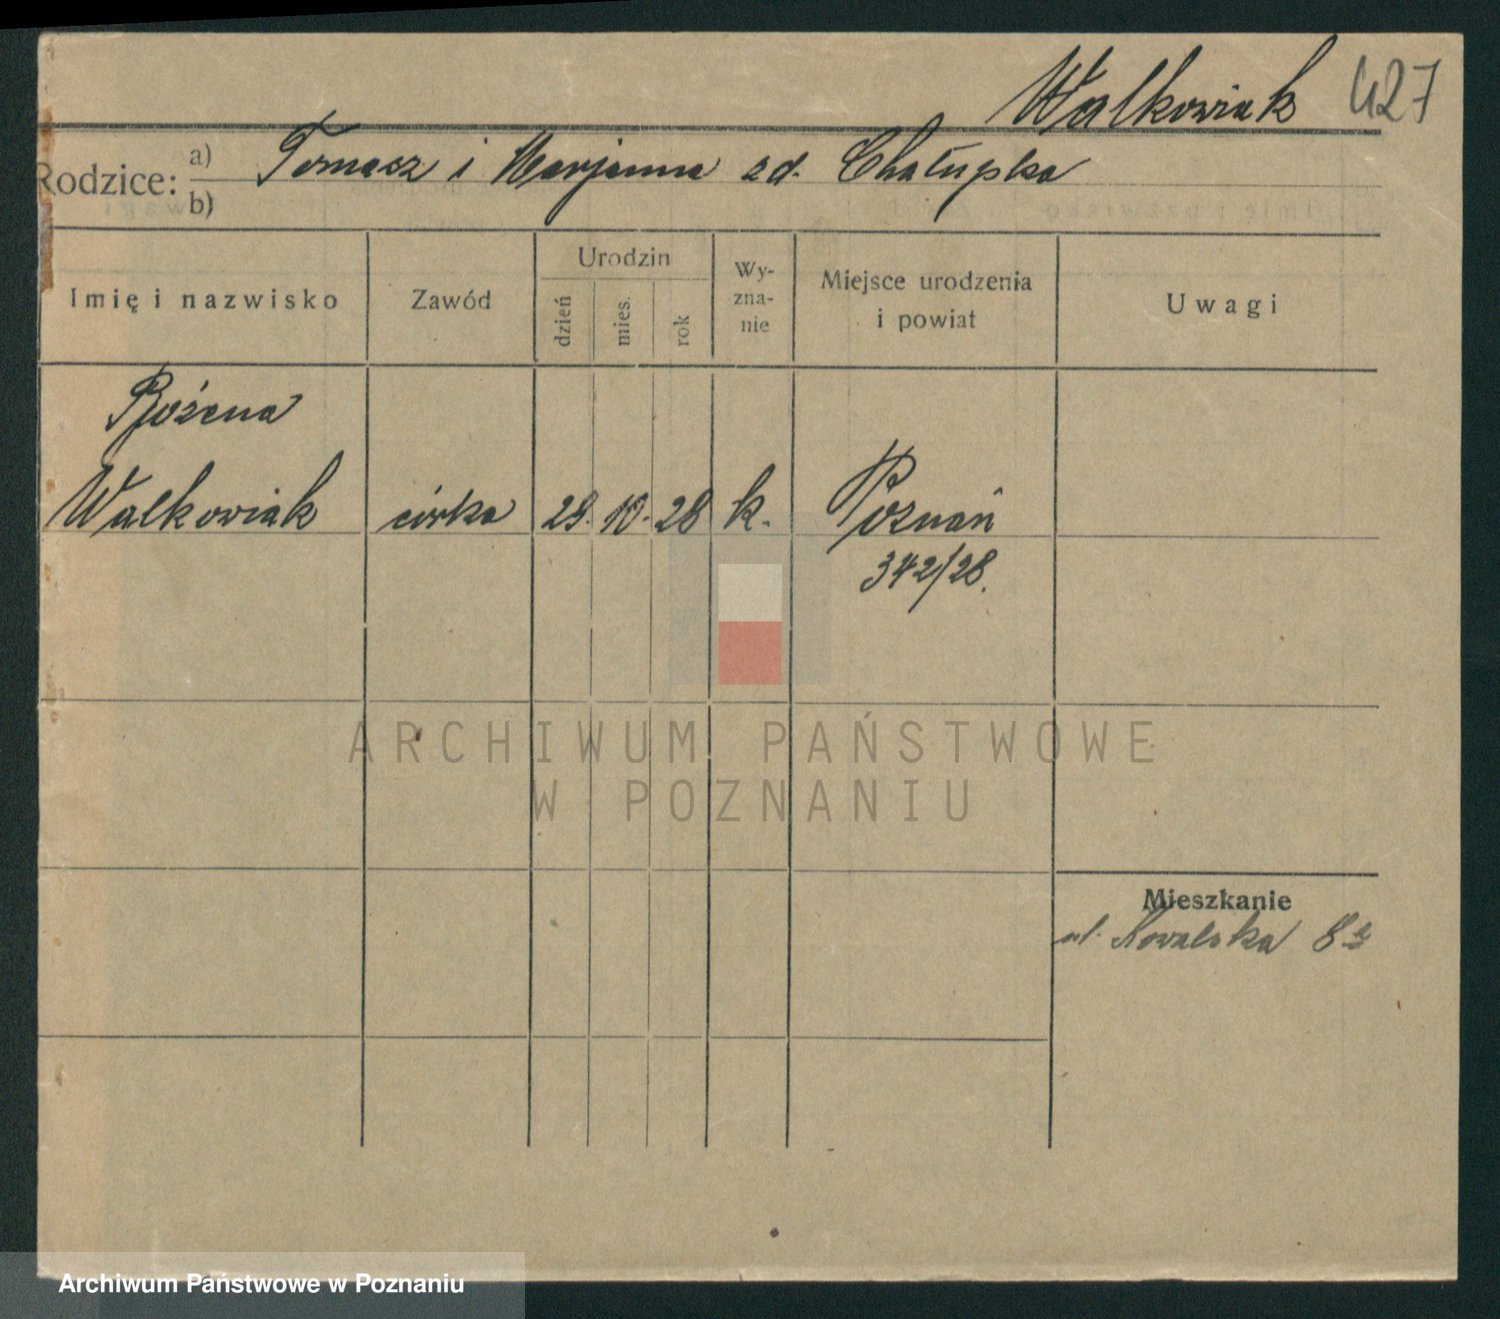 Walkowiak 427
Rodzice: a) Tomasz i Marjanna zd. Chałupka
b)
Imię i nazwisko Zawód Urodzin dzień mies. rok Wy-zna-nie Miejsce urodzenia i powiat Uwagi
Bożena
Walkowiak córka 29. 10. 28 k. Poznań
342/28.
ARCHIWUM PAŃSTWOWE
W POZNANIU
Mieszkanie
ul. Kowalska 8
Archiwum Państwowe w Poznaniu